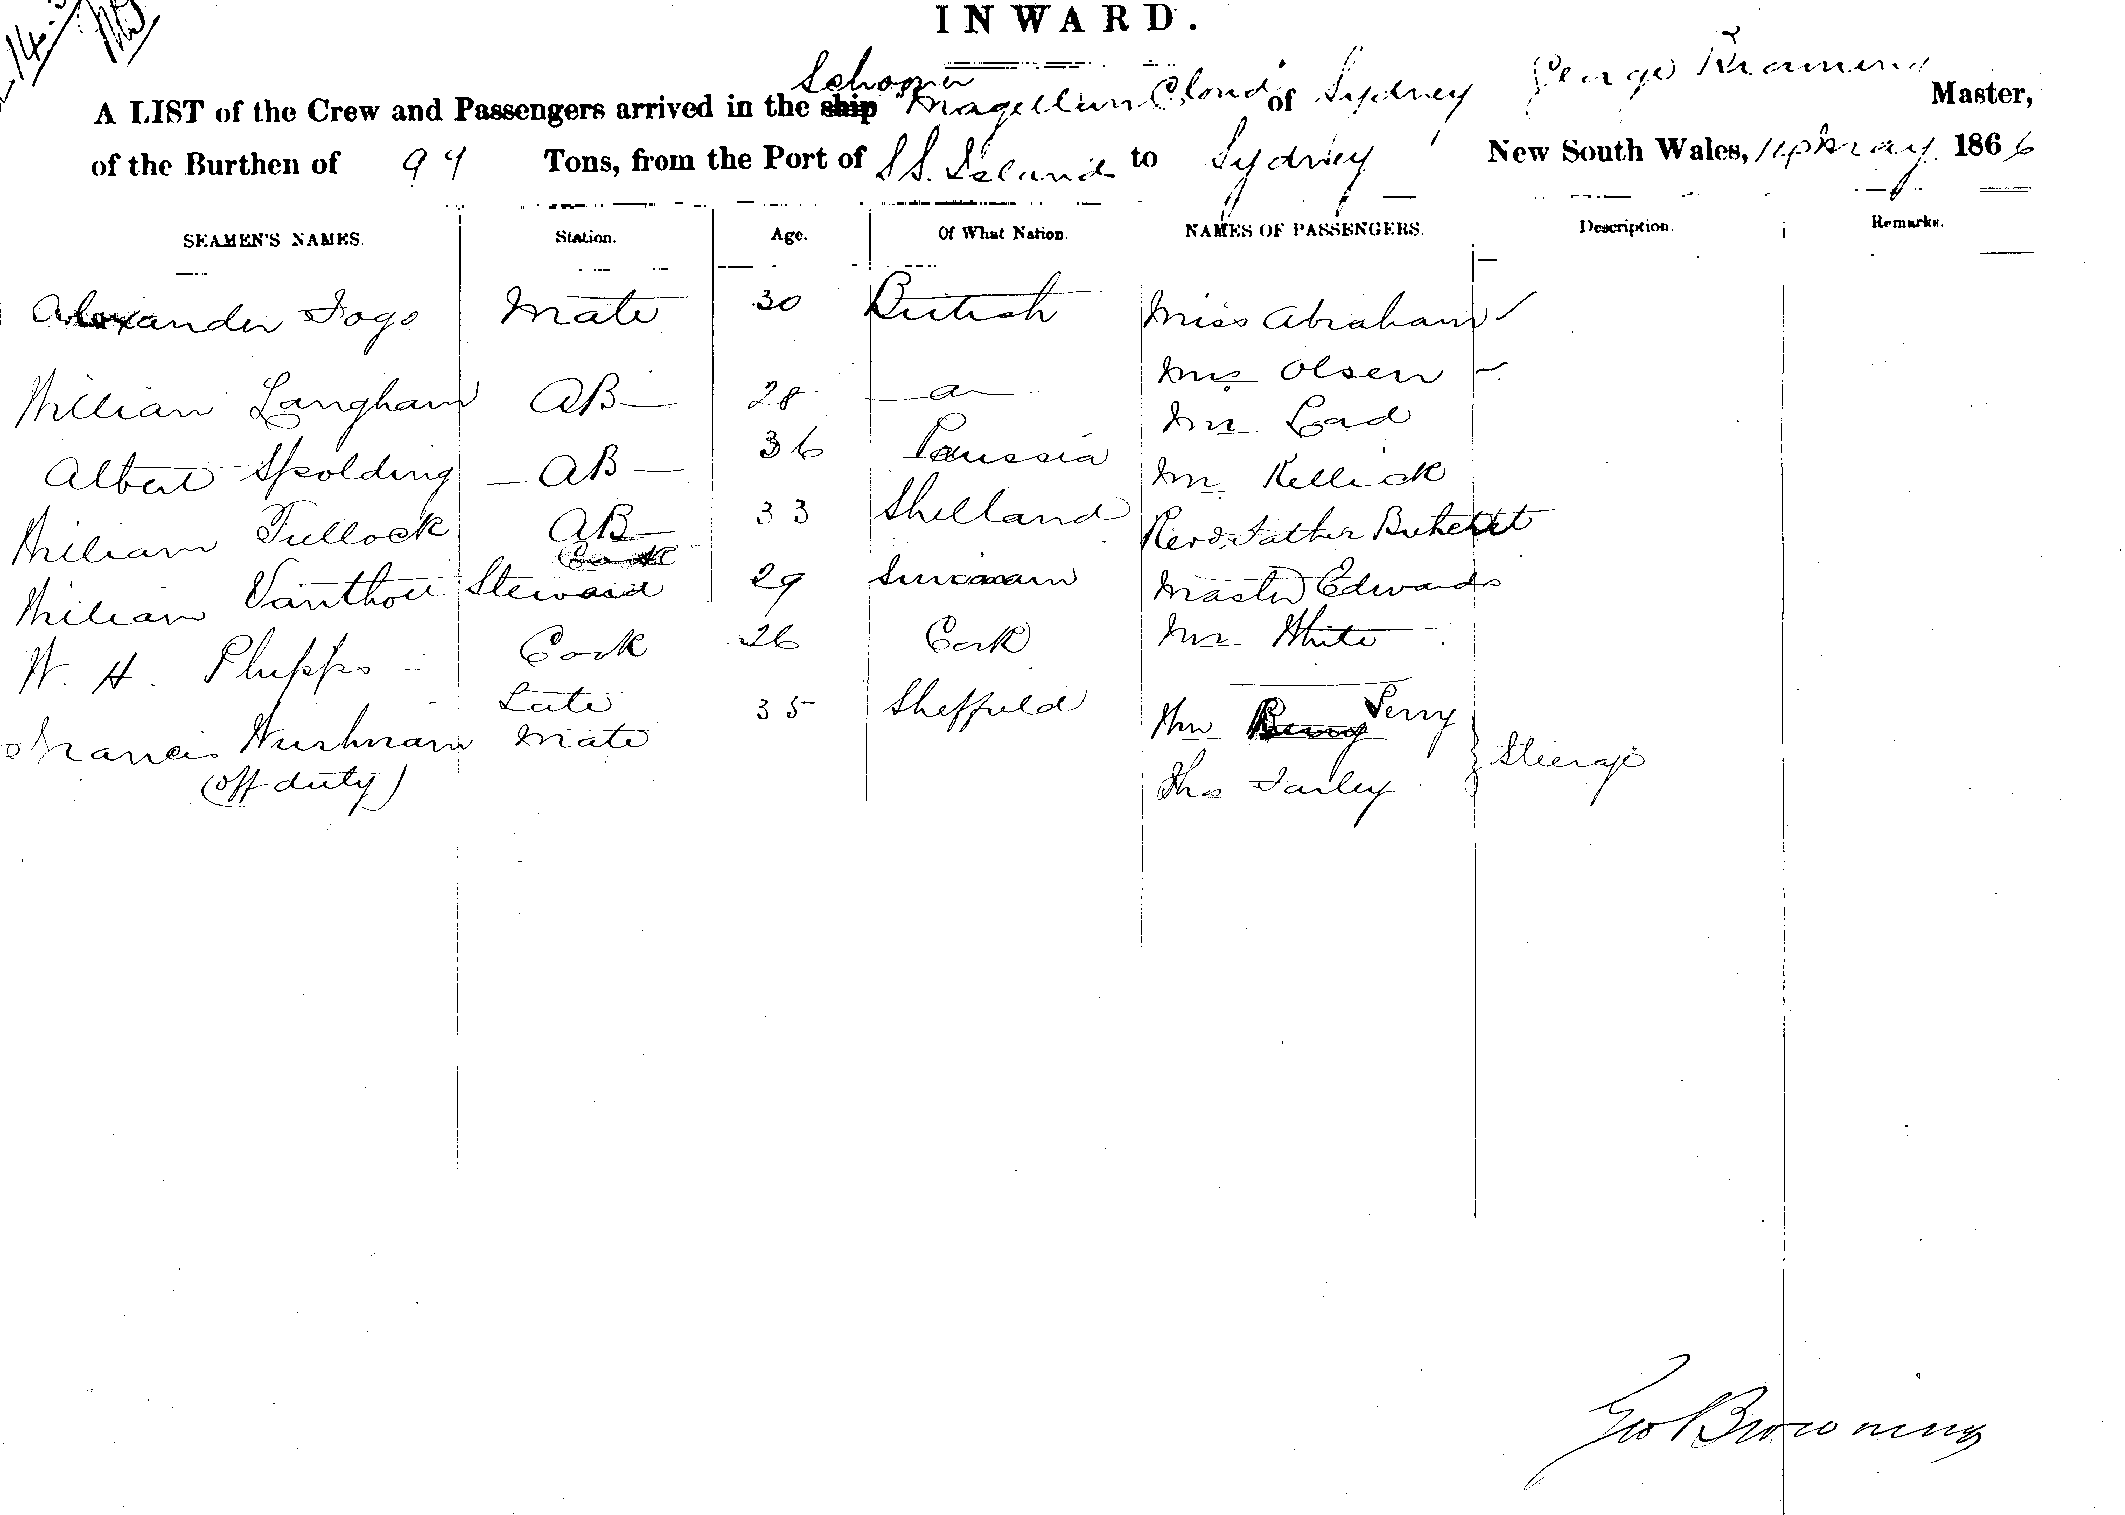 14
INWARD.
A LIST of the Crew and Passengers arrived in the ship Schooner Magellan Cloud of Sydney George Browning Master,
of the Burthen of 94 Tons, from the Port of S.S. Island to Sydney New South Wales, 14th May 1866
SEAMEN'S NAMES. Station. Age. Of What Nation. NAMES OF PASSENGERS. Description. Remarks.
Alexander Fogo Mate 30 British Miss Abraham
Mrs Olsen
William Langham AB 28 Mr Lad
Albert Spolding AB 36 Prussia Mr Kellick
William Tullock AB 33 Shetland Revd. Father
William Steward 29 Master Edwards
W. H. Phipps Cook 26 Cork Mr White
Francis Late Mate 35 Sheffield Perry
(off duty) Thos Farley Steerage
Geo Browning